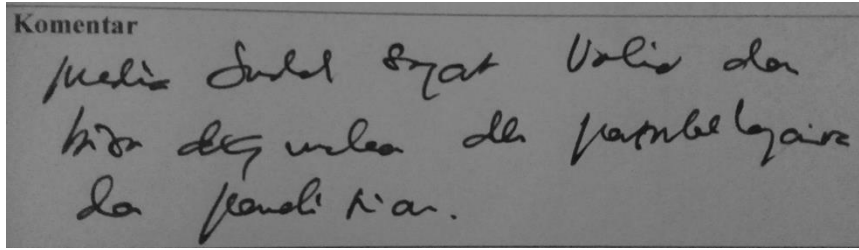 Komentar
Media sudah sangat valid dan
bisa digunakan dlm pembelajaran
dan penelitian.